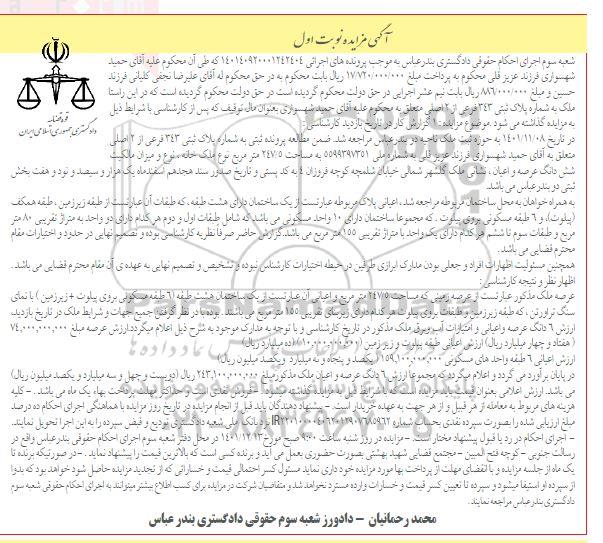 آگهی مزایده نوبت اول
قوه قضائیه
دادگستری جمهوری اسلامی ایران
شعبه سوم اجرای احکام حقوقی دادگستری بندرعباس به موجب پرونده های اجرائی ۱۴۰۱۴۰۹۲۰۰۰۱۲۴۲۴۰۴ که طی آن محکوم علیه آقای حمید
شهسواری فرزند عزیز قلی محکوم به پرداخت مبلغ ۱۷/۷۲۰/۰۰۰/۰۰۰ ریال بابت محکوم به در حق محکوم له آقای علیرضا نجفی کلیانی فرزند
حسین و مبلغ ۸۸۶/۰۰۰/۰۰۰ ریال بابت نیم عشر اجرایی در حق دولت محکوم گردیده است در حق دولت محکوم گردیده است که در این راستا
ملک به شماره پلاک ثبتی ۳۴۳ فرعی از ۲ اصلی متعلق به محکوم علیه آقای حمید شهسواری بعنوان مال توقیف که پس از کارشناسی با شرایط ذیل
به مزایده گذاشته می شود .موضوع مزایده: ۱ گزارش کار در تاریخ بازدید کارشناسی :
در تاریخ ۱۴۰۱/۱۱/۰۸ به حوزه ثبت ملک ناحیه دو بندرعباس مراجعه شد. ضمن مطالعه پرونده ثبتی به شماره پلاک ثبتی ۳۴۳ فرعی از ۲ اصلی
متعلق به آقای حمید شهسواری فرزند عزیز قلی به شماره ملی ۵۵۹۹۳۹۷۳۵۱ به مساحت ۲۴۷/۵ متر مربع نوع ملک خانه ، نوع و میزان مالکیت
شش دانگ عرصه و اعیان ، نشانی ملک گلشهر شمالی خیابان شلمچه کوچه فروزان ۴ به کد پستی و تاریخ صدور سند هجدهم اسفندماه یک هزار و سیصد و نود و هفت بخش
ثبتی دو بندرعباس می باشد.
به همراه خواهان به محل ساختمان مربوطه مراجعه شد، اعیانی پلاک مربوطه عبارتست از یک ساختمان دارای هشت طبقه، که طبقات آن عبارت از طبقه زیرزمین ، طبقه همکف
(پیلوت)، و ۶ طبقه مسکونی بروی پیلوت . که مجموعا ساختمان دارای ۱۰ واحد مسکونی می باشد که شامل طبقات اول و دوم هر کدام دارای دو واحد به متراژ تقریبی ۸۰ متر
مربع و طبقات سوم تا ششم هر کدام دارای یک واحد با متراژ تقریبی ۱۵۵ متر مربع می باشد.گزارش حاضر صرفا نظریه کارشناسی بوده و تصمیم نهایی در حدود و اختیارات مقام
محترم قضایی می باشد.
همچنین مسئولیت اظهارات افراد و جعلی بودن مدارک ابرازی طرفین در حیطه اختیارات کارشناس نبوده و تشخیص و تصمیم نهایی به عهده ی آن مقام محترم قضایی می باشد.
اظهار نظر و نتیجه کارشناسی :
عرصه ملک مذکور عبارتست از عرصه زمینی که مساحت ۲۴۷/۵ متر مربع و اعیانی آن عبارتست از یک ساختمان هشت طبقه (۶ طبقه مسکونی بروی پیلوت + زیرزمین ) با نمای
سنگ تراورتن ، که طبقه زیرزمین و طبقات بروی پیلوت هر کدام دارای زیربنای تقریبی ۱۵۵ متر مربع می باشند. بوده با در نظر گرفتن جمیع جهات و شرایط ملک در تاریخ بازدید
ارزش ۶ دانگ عرصه و اعیانی و امتیازات آب و برق ملک مذکور در تاریخ کارشناسی و با توجه به مدارک موجود به شرح ذیل اعلام میگردد:ارزش عرصه مبلغ ۷۴,۰۰۰,۰۰۰,۰۰۰
( هفتاد و چهار میلیارد ریال) ارزش اعیانی طبقه زیرزمین (۱۰,۰۰۰,۰۰۰,۰۰۰)(ده میلیارد ریال)
ارزش اعیانی ۶ طبقه واحد های مسکونی ۱۵۹,۱۰۰,۰۰۰,۰۰۰( یکصد و پنجاه و نه میلیارد و یکصد میلیون ریال)
در پایان برآورد می گردد و اعلام میگردد که مجموعا ارزش ۶ دانگ عرصه و اعیان ملک مذکور مبلغ ۲۴۳,۱۰۰,۰۰۰,۰۰۰ ریال (دویست و چهل و سه میلیارد و یکصد میلیون ریال)
می باشد. ارزش اعلامی بعنوان قیمت پایه مزایده است که با شرایط ذیل به مزایده گذاشته میشود . - فروش نقدی است و حداکثر مهلت پرداخت بهاء یک ماه می باشد . - کلیه
هزینه های مربوط به معامله از هر قبیل و از هر جهت به عهده خریدار است. - پیشنهاد دهندگان باید قبل از انجام مزایده و تاریخ روز مزایده با هماهنگی اجرای احکام ده درصد
مبلغ ارزیابی شده را بصورت سپرده نقدی بحساب شماره IR۲۲۰۱۰۰۰۰۴۰۶۲۰۱۲۹۰۷۷۸۵۹۶۲ نزد بانک ملی شعبه دادگستری تودیع و قبض سپرده را به این اجرا تحویل نمایند.
- اجرای احکام در رد یا قبول پیشنهاد مختار است . - مزایده در روز شنبه ساعت ۹:۰۰ صبح مورخ ۱۴۰۱/۱۲/۱۳ در محل دفتر شعبه سوم اجرای احکام حقوقی بندرعباس واقع در
رسالت جنوبی - کوچه فتح المبین - مجتمع قضایی شهید بهشتی بصورت حضوری بعمل می آید و برنده کسی است که بالاترین قیمت را پیشنهاد نماید . - در صورتیکه برنده تا
یک ماه از جلسه مزایده و با انقضای مهلت از پرداخت بها مورد مزایده خودداری نماید مسئول کسر احتمالی قیمت و خساراتی که از تجدید مزایده حاصل شود خواهد بود که بدوا
از سپرده او استیفا میشود و سپرده تا تعیین کسر قیمت و خسارات وارده مسترد نخواهد شد و متقاضیان شرکت در مزایده برای کسب اطلاع بیشتر میتوانند به اجرای احکام حقوقی شعبه سوم
دادگستری بندرعباس مراجعه نمایند.
محمد رحمانیان - دادورز شعبه سوم حقوقی دادگستری بندر عباس